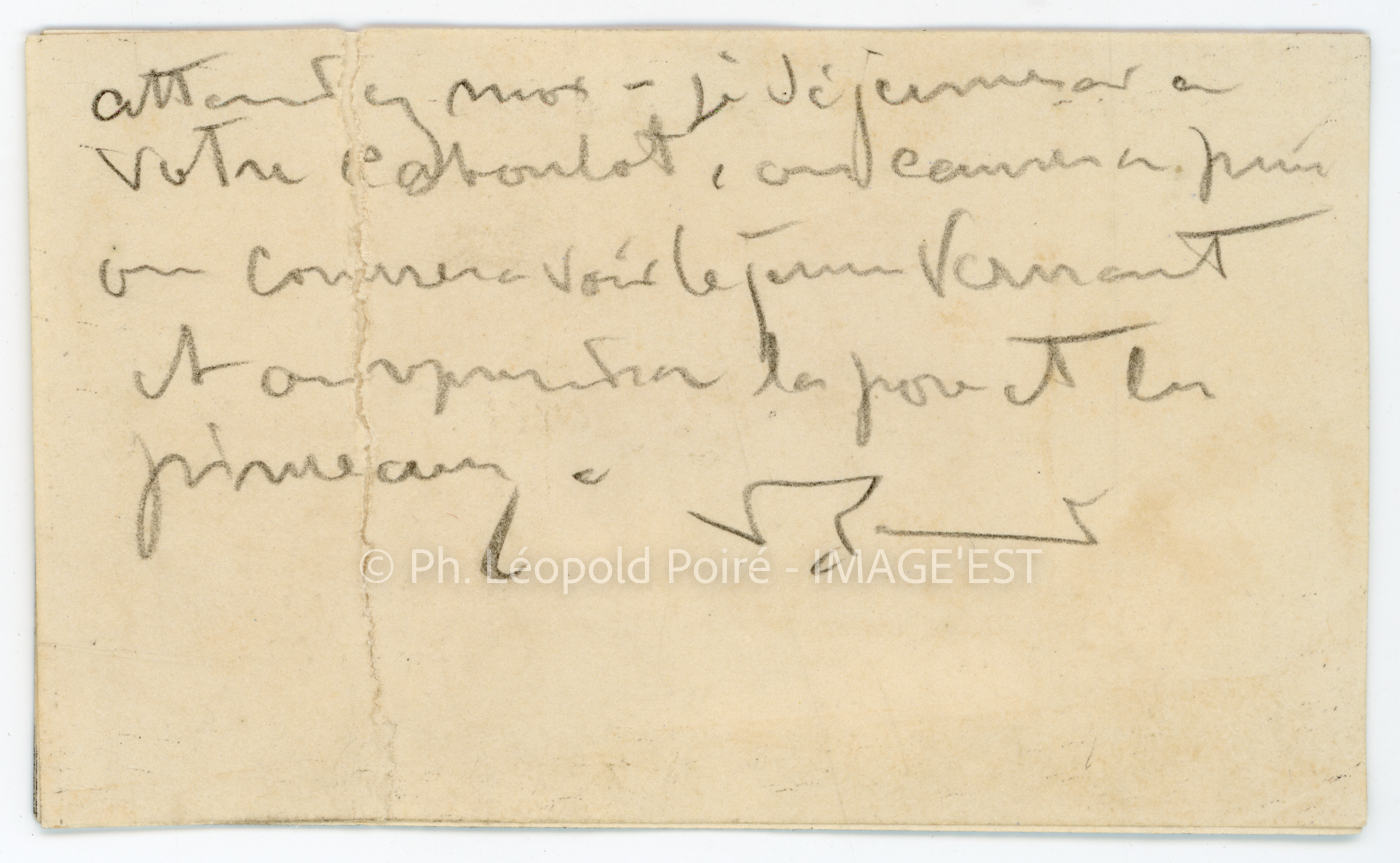 attendez moi - je déjeunerai a
votre caboulot, on causera puis
on courrera voir le jeune Vernant
et on reprendra la pose et les
pinceaux.
© Ph. Léopold Poiré - IMAGE'EST